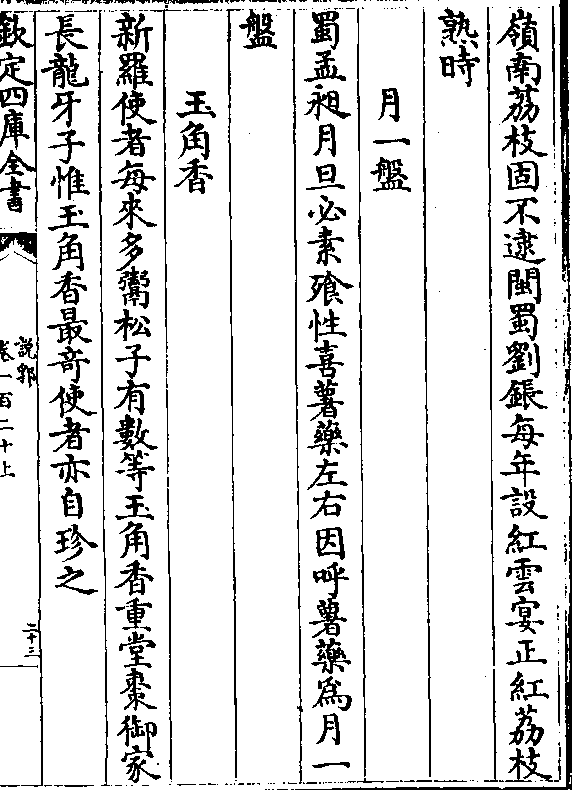 嶺南荔枝固不逮閩蜀劉鋹每年設紅雲宴正紅荔枝
熟時
月一盤
蜀孟昶月旦必素飱性喜薯藥左右因呼薯藥爲月一
盤
玉角香
新羅使者每來多鬻松子有數等玉角香重堂棗御家
長龍牙子惟玉角香最奇使者亦自珍之
欽定四庫全書
說郛
卷一百二十上
二十三